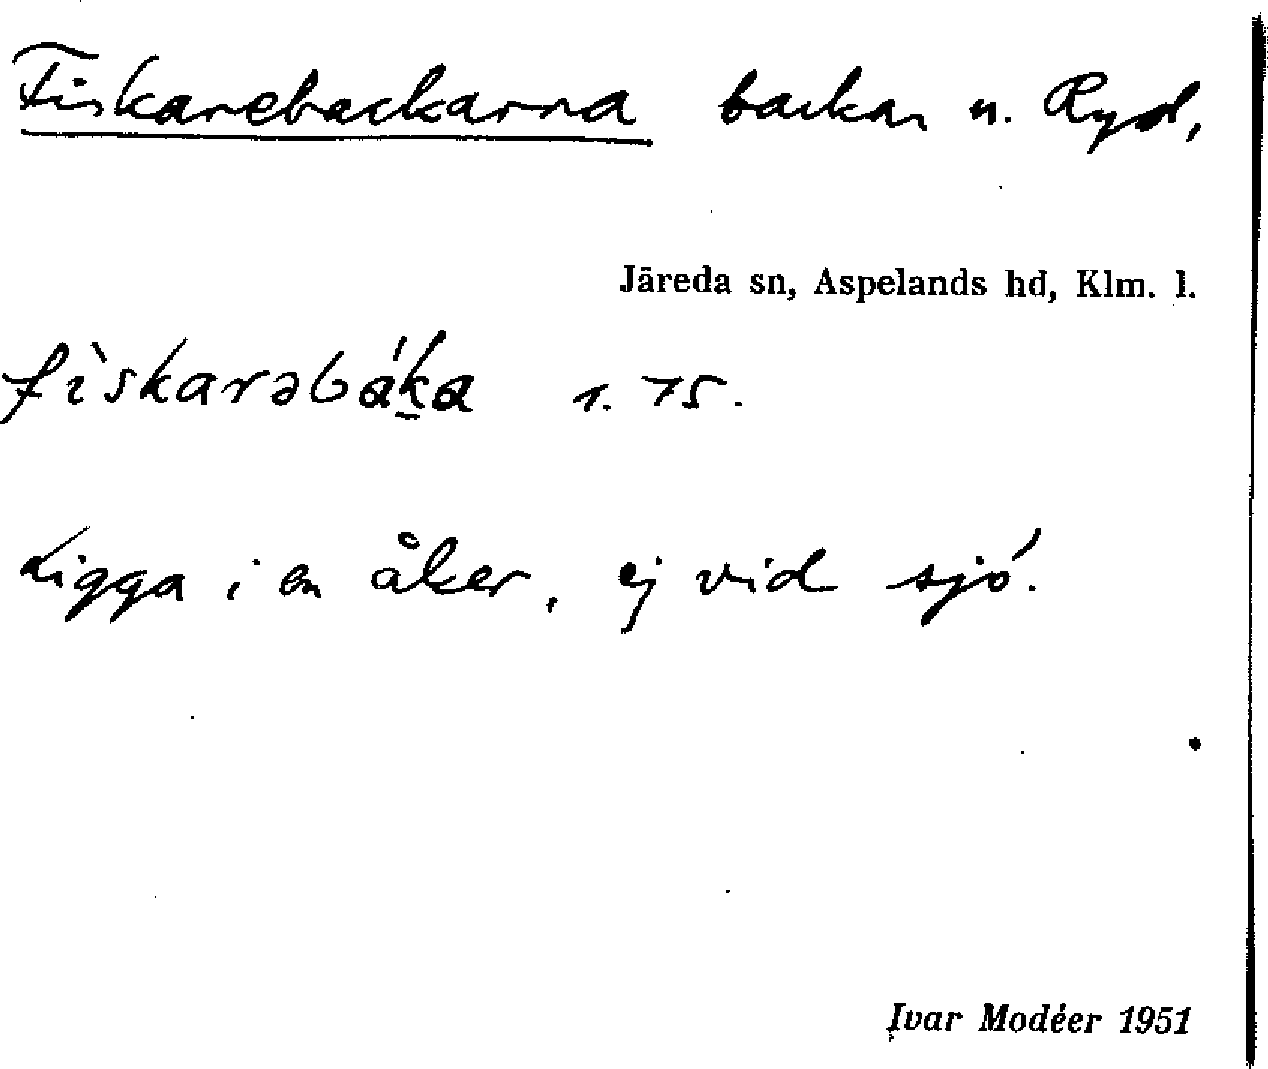 Fiskarebackarna backar n. Ryd,
Järeda sn, Aspelands hd, Klm. l.
fìskarəbák̲a 1. 75.
Ligga i en åker, ej vid sjö.
Ivar Modéer 1951